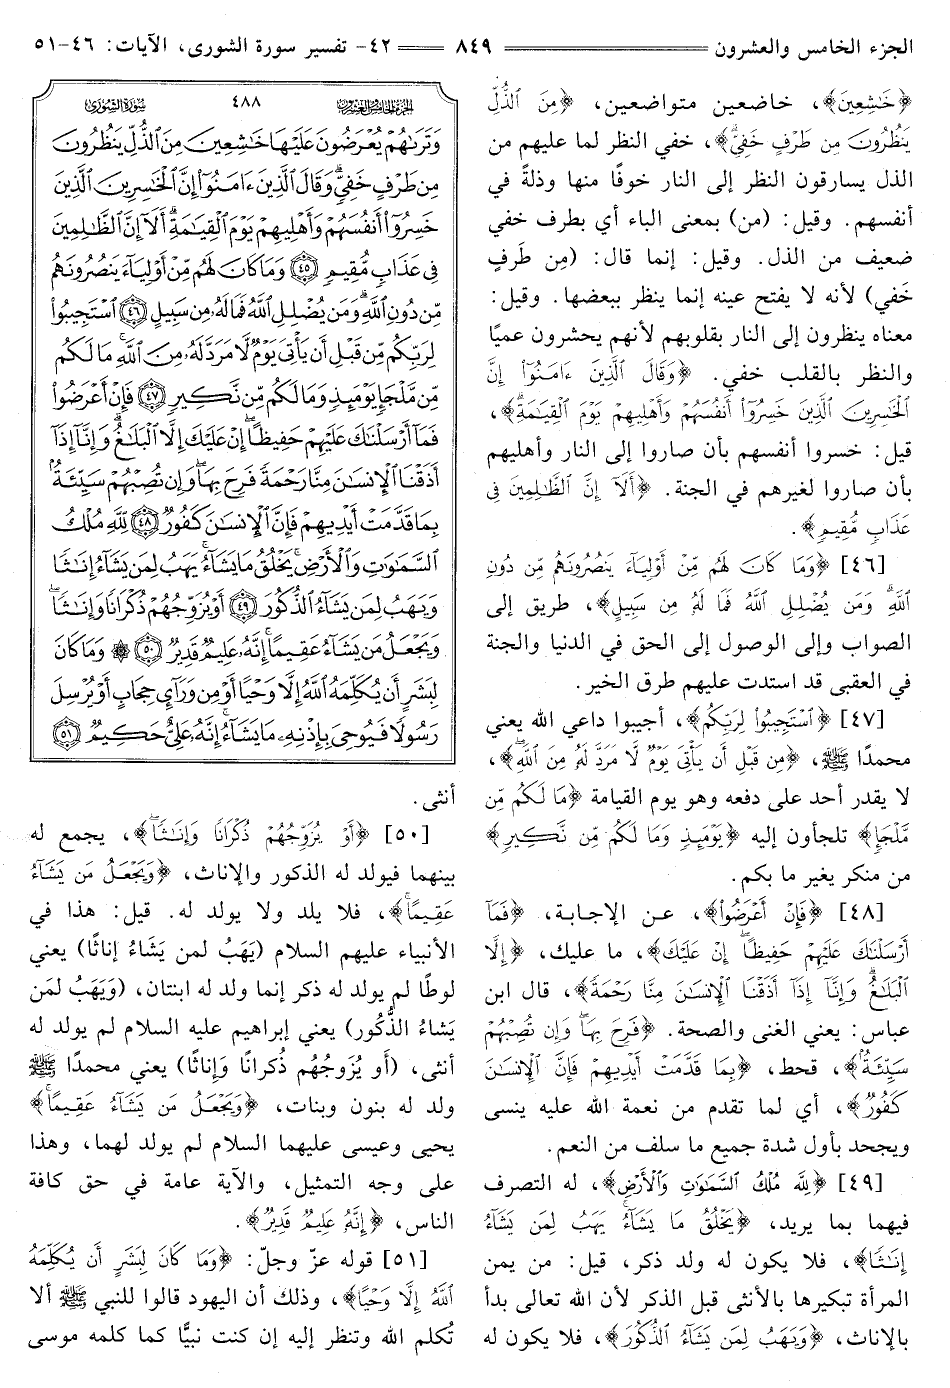 الجزء الخامس والعشرون ٨٤٩ ٤٢- تفسير سورة الشورى، الآيات: ٤٦-٥١
﴿خَٰشِعِينَ﴾، خاضعين متواضعين، ﴿مِنَ ٱلذُّلِّ
يَنظُرُونَ مِن طَرْفٍ خَفِيٍّۗ﴾، خفي النظر لما عليهم من
الذل يسارقون النظر إلى النار خوفًا منها وذلةً في
أنفسهم. وقيل: (من) بمعنى الباء أي بطرف خفي
ضعيف من الذل. وقيل: إنما قال: (مِن طَرفٍ
خَفي) لأنه لا يفتح عينه إنما ينظر ببعضها. وقيل:
معناه ينظرون إلى النار بقلوبهم لأنهم يحشرون عميًا
والنظر بالقلب خفي. ﴿وَقَالَ ٱلَّذِينَ ءَامَنُوٓاْ إِنَّ
ٱلْخَٰسِرِينَ ٱلَّذِينَ خَسِرُوٓاْ أَنفُسَهُمْ وَأَهْلِيهِمْ يَوْمَ ٱلْقِيَٰمَةِۗ﴾،
قيل: خسروا أنفسهم بأن صاروا إلى النار وأهليهم
بأن صاروا لغيرهم في الجنة. ﴿أَلَآ إِنَّ ٱلظَّٰلِمِينَ فِى
عَذَابٍ مُّقِيمٍ﴾.
[٤٦] ﴿وَمَا كَانَ لَهُم مِّنْ أَوْلِيَآءَ يَنصُرُونَهُم مِّن دُونِ
ٱللَّهِۗ وَمَن يُضْلِلِ ٱللَّهُ فَمَا لَهُۥ مِن سَبِيلٍ﴾، طريق إلى
الصواب وإلى الوصول إلى الحق في الدنيا والجنة
في العقبى قد استدت عليهم طرق الخير.
[٤٧] ﴿ٱسْتَجِيبُواْ لِرَبِّكُم﴾، أجيبوا داعي الله يعني
محمدًا ﷺ، ﴿مِّن قَبْلِ أَن يَأْتِىَ يَوْمٌ لَّا مَرَدَّ لَهُۥ مِنَ ٱللَّهِۚ﴾،
لا يقدر أحد على دفعه وهو يوم القيامة ﴿مَا لَكُم مِّن
مَّلْجَإٍ﴾ تلجأون إليه ﴿يَوْمَئِذٍ وَمَا لَكُم مِّن نَّكِيرٍ﴾
من منكر يغير ما بكم.
[٤٨] ﴿فَإِنْ أَعْرَضُواْ﴾، عن الإجابة، ﴿فَمَآ
أَرْسَلْنَٰكَ عَلَيْهِمْ حَفِيظًاۖ إِنْ عَلَيْكَ﴾، ما عليك، ﴿إِلَّا
ٱلْبَلَٰغُۗ وَإِنَّآ إِذَآ أَذَقْنَا ٱلْإِنسَٰنَ مِنَّا رَحْمَةً﴾، قال ابن
عباس: يعني الغنى والصحة. ﴿فَرِحَ بِهَاۖ وَإِن تُصِبْهُمْ
سَيِّئَةٌۢ﴾، قحط، ﴿بِمَا قَدَّمَتْ أَيْدِيهِمْ فَإِنَّ ٱلْإِنسَٰنَ
كَفُورٌ﴾، أي لما تقدم من نعمة الله عليه ينسى
ويجحد بأول شدة جميع ما سلف من النعم.
[٤٩] ﴿لِّلَّهِ مُلْكُ ٱلسَّمَٰوَٰتِ وَٱلْأَرْضِۚ﴾، له التصرف
فيهما بما يريد، ﴿يَخْلُقُ مَا يَشَآءُۚ يَهَبُ لِمَن يَشَآءُ
إِنَٰثًا﴾، فلا يكون له ولد ذكر، قيل: من يمن
المرأة تبكيرها بالأنثى قبل الذكر لأن الله تعالى بدأ
بالإناث، ﴿وَيَهَبُ لِمَن يَشَآءُ ٱلذُّكُورَ﴾، فلا يكون له
سورة الشورى ٤٨٨ الجزء الخامس والعشرون
وَتَرَىٰهُمْ يُعْرَضُونَ عَلَيْهَا خَٰشِعِينَ مِنَ ٱلذُّلِّ يَنظُرُونَ
مِن طَرْفٍ خَفِىٍّۗ وَقَالَ ٱلَّذِينَ ءَامَنُوٓاْ إِنَّ ٱلْخَٰسِرِينَ ٱلَّذِينَ
خَسِرُوٓاْ أَنفُسَهُمْ وَأَهْلِيهِمْ يَوْمَ ٱلْقِيَٰمَةِۗ أَلَآ إِنَّ ٱلظَّٰلِمِينَ
فِى عَذَابٍ مُّقِيمٍ ٤٥ وَمَا كَانَ لَهُم مِّنْ أَوْلِيَآءَ يَنصُرُونَهُم
مِّن دُونِ ٱللَّهِۗ وَمَن يُضْلِلِ ٱللَّهُ فَمَا لَهُۥ مِن سَبِيلٍ ٤٦ ٱسْتَجِيبُواْ
لِرَبِّكُم مِّن قَبْلِ أَن يَأْتِىَ يَوْمٌ لَّا مَرَدَّ لَهُۥ مِنَ ٱللَّهِۚ مَا لَكُم
مِّن مَّلْجَإٍ يَوْمَئِذٍ وَمَا لَكُم مِّن نَّكِيرٍ ٤٧ فَإِنْ أَعْرَضُواْ
فَمَآ أَرْسَلْنَٰكَ عَلَيْهِمْ حَفِيظًاۖ إِنْ عَلَيْكَ إِلَّا ٱلْبَلَٰغُۗ وَإِنَّآ إِذَآ
أَذَقْنَا ٱلْإِنسَٰنَ مِنَّا رَحْمَةً فَرِحَ بِهَاۖ وَإِن تُصِبْهُمْ سَيِّئَةٌۢ
بِمَا قَدَّمَتْ أَيْدِيهِمْ فَإِنَّ ٱلْإِنسَٰنَ كَفُورٌ ٤٨ لِّلَّهِ مُلْكُ
ٱلسَّمَٰوَٰتِ وَٱلْأَرْضِۚ يَخْلُقُ مَا يَشَآءُۚ يَهَبُ لِمَن يَشَآءُ إِنَٰثًا
وَيَهَبُ لِمَن يَشَآءُ ٱلذُّكُورَ ٤٩ أَوْ يُزَوِّجُهُمْ ذُكْرَانًا وَإِنَٰثًاۖ
وَيَجْعَلُ مَن يَشَآءُ عَقِيمًاۚ إِنَّهُۥ عَلِيمٌ قَدِيرٌ ٥٠ ۞ وَمَا كَانَ
لِبَشَرٍ أَن يُكَلِّمَهُ ٱللَّهُ إِلَّا وَحْيًا أَوْ مِن وَرَآئِ حِجَابٍ أَوْ يُرْسِلَ
رَسُولًا فَيُوحِىَ بِإِذْنِهِۦ مَا يَشَآءُۚ إِنَّهُۥ عَلِىٌّ حَكِيمٌ ٥١
أنثى.
[٥٠] ﴿أَوْ يُزَوِّجُهُمْ ذُكْرَانًا وَإِنَٰثًاۖ﴾، يجمع له
بينهما فيولد له الذكور والإناث، ﴿وَيَجْعَلُ مَن يَشَآءُ
عَقِيمًاۚ﴾، فلا يلد ولا يولد له. قيل: هذا في
الأنبياء عليهم السلام (يَهَبُ لمن يَشَاءُ إناثًا) يعني
لوطًا لم يولد له ذكر إنما ولد له ابنتان، (وَيَهَبُ لمَن
يَشاءُ الذُّكُور) يعني إبراهيم عليه السلام لم يولد له
أنثى، (أو يُزَوجُهُم ذُكرانًا وَإناثًا) يعني محمدًا ﷺ
ولد له بنون وبنات، ﴿وَيَجْعَلُ مَن يَشَآءُ عَقِيمًاۚ﴾
يحيى وعيسى عليهما السلام لم يولد لهما، وهذا
على وجه التمثيل، والآية عامة في حق كافة
الناس، ﴿إِنَّهُۥ عَلِيمٌ قَدِيرٌ﴾.
[٥١] قوله عزّ وجلّ: ﴿وَمَا كَانَ لِبَشَرٍ أَن يُكَلِّمَهُ
ٱللَّهُ إِلَّا وَحْيًا﴾، وذلك أن اليهود قالوا للنبي ﷺ ألا
تُكلم الله وتنظر إليه إن كنت نبيًّا كما كلمه موسى